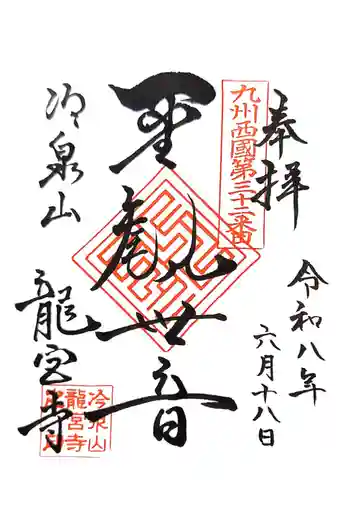 奉拝
九州西國第三十二番
令和八年
六月十八日
聖観世音
冷泉山
龍宮寺
冷泉山
龍宮寺